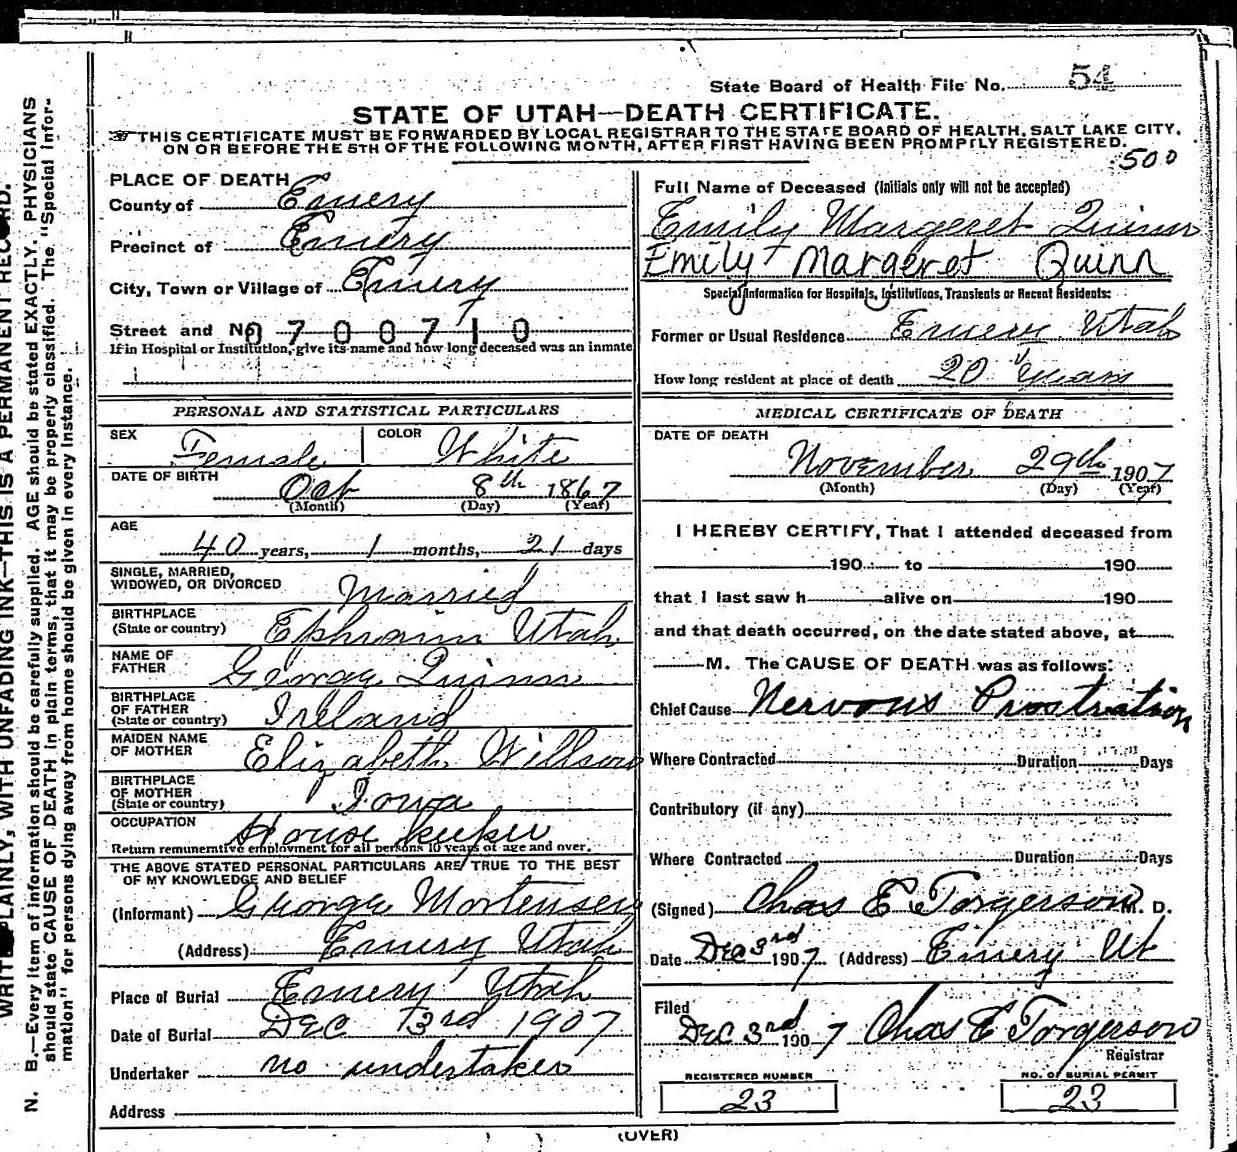 State Board of Health File No. 54
STATE OF UTAH—DEATH CERTIFICATE.
THIS CERTIFICATE MUST BE FORWARDED BY LOCAL REGISTRAR TO THE STATE BOARD OF HEALTH, SALT LAKE CITY,
ON OR BEFORE THE 5TH OF THE FOLLOWING MONTH, AFTER FIRST HAVING BEEN PROMPTLY REGISTERED.
500
PLACE OF DEATH
County of Emery
Precinct of Emery
City, Town or Village of Emery
Street and No. 0700710
If in Hospital or Institution, give its name and how long deceased was an inmate
Full Name of Deceased (Initials only will not be accepted)
Emily Margeret Quinn
Emily Margeret Quinn
Special Information for Hospitals, Institutions, Transients or Recent Residents:
Former or Usual Residence Emery Utah
How long resident at place of death 20 Years
PERSONAL AND STATISTICAL PARTICULARS
SEX Female COLOR White
DATE OF BIRTH Oct 8th 1867
(Month) (Day) (Year)
AGE
40 years, 1 months, 21 days
SINGLE, MARRIED,
WIDOWED, OR DIVORCED Married
BIRTHPLACE
(State or country) Ephraim Utah
NAME OF
FATHER George Quinn
BIRTHPLACE
OF FATHER
(State or country) Ireland
MAIDEN NAME
OF MOTHER Elizabeth Willson
BIRTHPLACE
OF MOTHER
(State or country) Iowa
OCCUPATION House keeker
Return remunerative employment for all persons 10 years of age and over.
THE ABOVE STATED PERSONAL PARTICULARS ARE TRUE TO THE BEST
OF MY KNOWLEDGE AND BELIEF
(Informant) George Mortensen
(Address) Emery Utah
Place of Burial Emery Utah
Date of Burial Dec 3rd 1907
Undertaker no undertaker
Address
MEDICAL CERTIFICATE OF DEATH
DATE OF DEATH
November 29th 1907
(Month) (Day) (Year)
I HEREBY CERTIFY, That I attended deceased from
190 to 190
that I last saw h alive on 190
and that death occurred, on the date stated above, at
M. The CAUSE OF DEATH was as follows:
Chief Cause Nervous Prostration
Where Contracted Duration Days
Contributory (if any)
Where Contracted Duration Days
(Signed) Chas E Torgerson M. D.
Date Dec 3rd 1907 (Address) Emery Ut
Filed
Dec 3rd 1907 Chas E Torgerson
Registrar
REGISTERED NUMBER NO. OF BURIAL PERMIT
23 23
(OVER)
WRITE PLAINLY, WITH UNFADING INK—THIS IS A PERMANENT RECORD.
N. B.—Every item of information should be carefully supplied. AGE should be stated EXACTLY. PHYSICIANS
should state CAUSE OF DEATH in plain terms, that it may be properly classified. The "Special Infor-
mation" for persons dying away from home should be given in every instance.